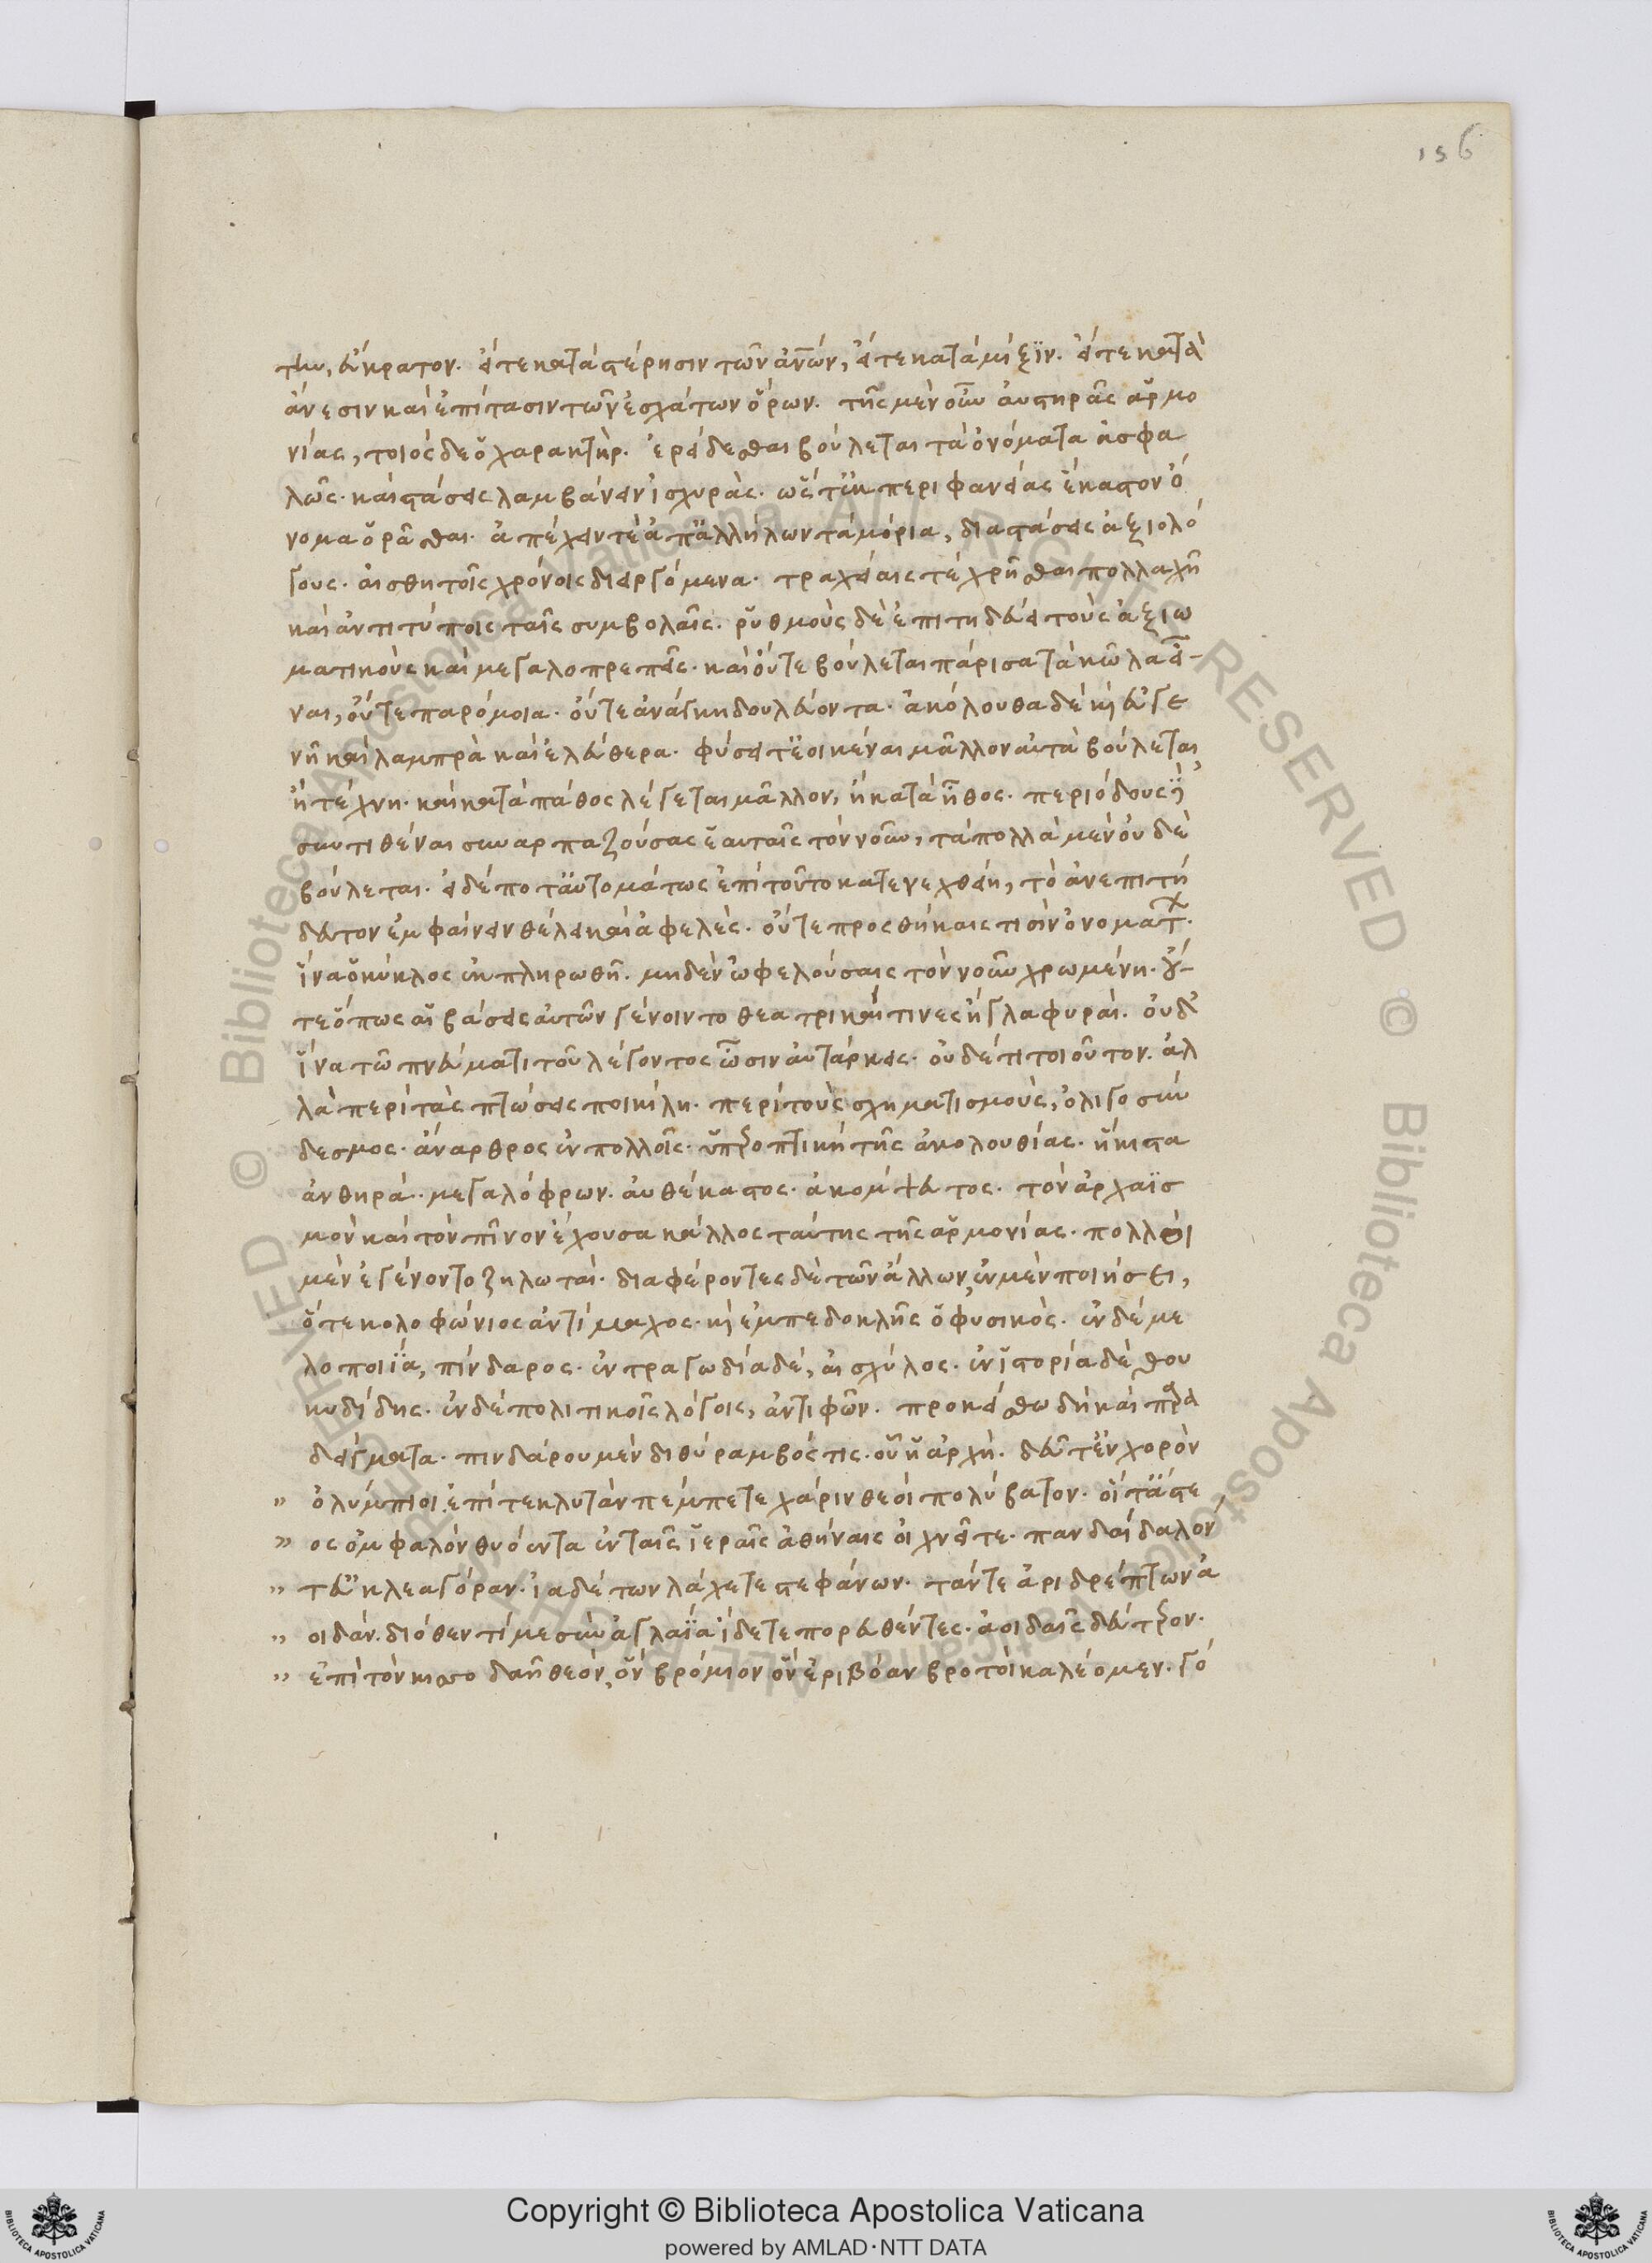 156
την, εὔκρατον. εἴτε κατὰ στέρησιν τῶν ἀνων, εἴτε κατὰ μίξιν. εἴτε κατὰ
ἄνεσιν καὶ ἐπίτασιν τῶν ἐσχάτων ὅρων. τῆς μὲν οὖν αὐστηρᾶς ἁρμο
νίας, τοιόσδε ὁ χαρακτὴρ. ἐρείδεσθαι βούλεται τὰ ὀνόματα ἀσφα
λῶς. καὶ στάσεις λαμβάνειν ἰσχυρὰς. ὥστ' ἐκ περιφανείας ἕκαστον ὄ
νομα ὁρᾶσθαι. ἀπέχειν τὲ ἀπ' ἀλλήλων τὰ μόρια, διαστάσεις ἀξιολό
γους. αἰσθητοῖς χρόνοις διειργόμενα. τραχείαις τὲ χρῆσθαι πολλαχῆ
καὶ ἀντιτύποις ταῖς συμβολαῖς. ῥυθμοὺς δὲ ἐπιτηδεύει τοὺς ἀξιω
ματικοὺς καὶ μεγαλοπρεπεῖς. καὶ οὔτε βούλεται πάρισα τὰ κῶλα εἶ-
ναι, οὔτε παρόμοια. οὔτε ἀνάγκη δουλεύοντα. ἀκόλουθα δὲ κὶ εὐγε
νῆ καὶ λαμπρὰ καὶ ἐλεύθερα. φύσει τ' ἐοικέναι μᾶλλον αὐτὰ βούλεται
ἢ τέχνη. καὶ κατὰ πάθος λέγεται μᾶλλον, ἢ κατὰ ἦθος. περιόδους δὲ
συντιθέναι συναρπαζούσας ἑαυταῖς τὸν νοῦν, τὰ πολλὰ μὲν οὐδὲ
βούλεται. εἰ δέ ποτ' αὐτομάτως ἐπὶ τοῦτο κατενεχθείη, τὸ ἀνεπιτή
δευτον ἐμφαίνειν θέλει καὶ ἀφελὲς. οὔτε προσθήκαις τισὶν ὀνομάτ.
ἵνα ὁ κύκλος ἐκπληρωθῆ. μηδὲν ὠφελούσαις τὸν νοῦν χρωμένη. οὔ-
τε ὅπως αἱ βάσεις αὐτῶν γένοιντο θεατρικαί τινες ἢ γλαφυραὶ. οὐδ'
ἵνα τῶ πνεύματι τοῦ λέγοντος ὦσιν αὐτάρκεις. οὐδέ τι τοιοῦτον. ἀλ
λὰ περὶ τὰς πτώσεις ποικίλη. περὶ τοὺς σχηματισμοὺς, ὀλιγοσύν
δεσμος. ἄναρθρος ἐν πολλοῖς. ὑπεροπτικὴ τῆς ἀκολουθίας. ἥκιστα
ἀνθηρά. μεγαλόφρων. αὐθέκαστος. ἀκόμψευτος. τὸν ἀρχαϊσ
μὸν καὶ τὸν πῖνον ἔχουσα κάλλος ταύτης τῆς ἁρμονίας. πολλοὶ
μὲν ἐγένοντο ζηλωταὶ. διαφέροντες δὲ τῶν ἄλλων, ἐν μὲν ποιήσει,
ὅτε κολοφώνιος ἀντίμαχος. κὶ ἐμπεδοκλῆς ὁ φυσικὸς. ἐν δὲ με
λοποιΐα, πίνδαρος. ἐν τραγωδία δὲ, αἰσχύλος. ἐν ἱστορία δὲ θου
κυδίδης. ἐν δὲ πολιτικοῖς λόγοις, ἀντιφῶν. προκείσθω δὴ καὶ παρα
δείγματα. πινδάρου μὲν διθύραμβός τις. οὗ ἡ ἀρχὴ. δεῦτ' ἐν χορὸν
" ὀλύμπιοι. ἐπί τε κλυτὰν πέμπετε χάριν θεοὶ πολύβατον. οἵτ' ἄστε
" ος ὀμφαλὸν θυόεντα ἐν ταῖς ἱεραῖς ἀθήναις οἰχνεῖτε. πανδαίδαλον
" τ' εὐκλέα γόραν. ἰαδέτων λάχετε στεφάνων. τάντε ἀριδρέπτων ἀ
" οιδάν. διόθεν τί με σὺν ἀγλαΐα ἴδετε πορευθέντες. ἀοιδαῖς δεύτερον.
" ἐπὶ τὸν κισσοδαῆ θεὸν, ὃν βρόμιον ὃν ἐριβόαν βροτοὶ καλέομεν. γό
Copyright © Biblioteca Apostolica Vaticana
powered by AMLAD·NTT DATA